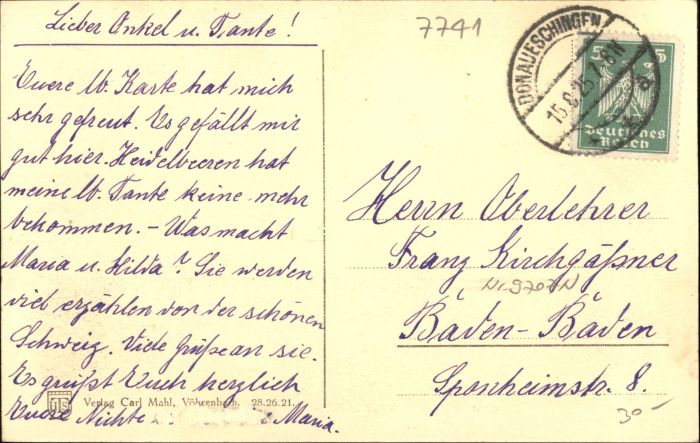 Lieber Onkel u. Tante!
Euere lb. Karte hat mich
sehr gefreut. Es gefällt mir
gut hier. Heidelbeeren hat
meine lb. Tante keine mehr
bekommen. – Was macht
Maria u. Hilda? Sie werden
viel erzählen von der schönen
Schweiz. Viele Grüße an sie.
Es grüßt Euch herzlich
Euere Nichte Maria.
Verlag Carl Mahl, Vöhrenbach. 28.26.21.
7741
DONAUESCHINGEN
15.8.25.7-8N
a
5 5
Deutsches
Reich
Herrn Oberlehrer
Franz Kirchgäßner
Baden-Baden
Sponheimstr. 8.
30-